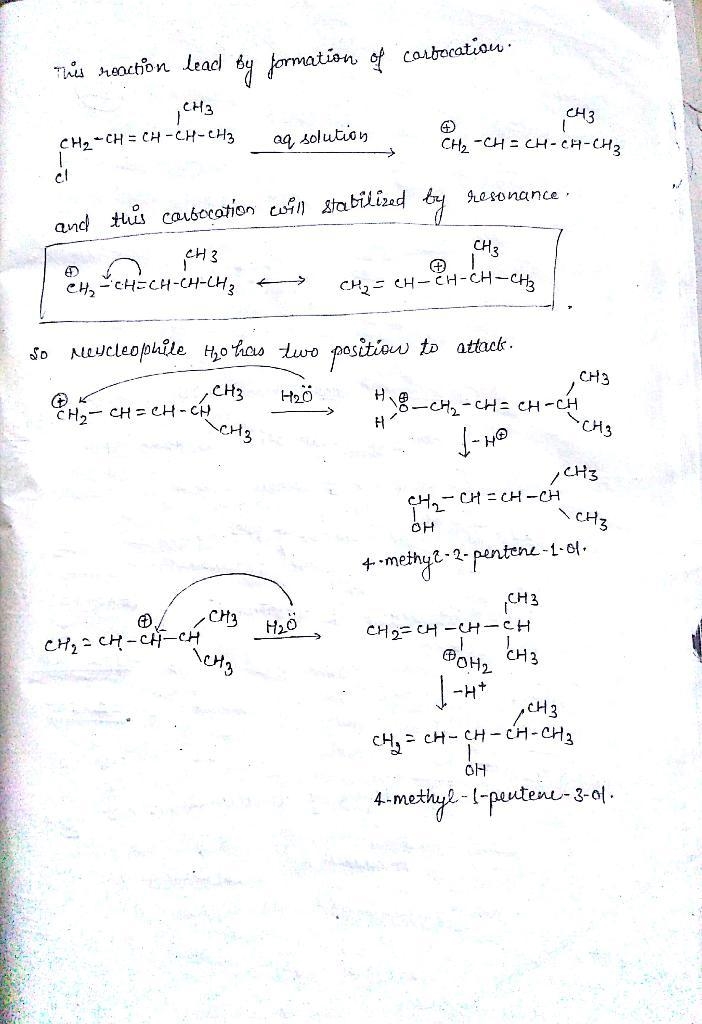 This reaction lead by formation of carbocation.
CH3
CH2-CH=CH-CH-CH3 aq solution ⊕CH2-CH=CH-CH-CH3
Cl CH3
and this carbocation will stabilized by resonance.
CH3 CH3
⊕CH2-CH=CH-CH-CH3 ⟷ CH2=CH-⊕CH-CH-CH3
so Neucleophile H2O has two position to attack.
⊕CH2-CH=CH-CH CH3 CH3 H2Ö → H H ⊕O-CH2-CH=CH-CH CH3 CH3
↓-H⊕
CH2-CH=CH-CH CH3 CH3
OH
4-methyl-2-pentene-1-ol.
CH2=CH-⊕CH-CH CH3 CH3 H2Ö → CH2=CH-CH-CH CH3 CH3
⊕OH2
↓-H+
CH3
CH2=CH-CH-CH-CH3
OH
4-methyl-1-pentene-3-ol.